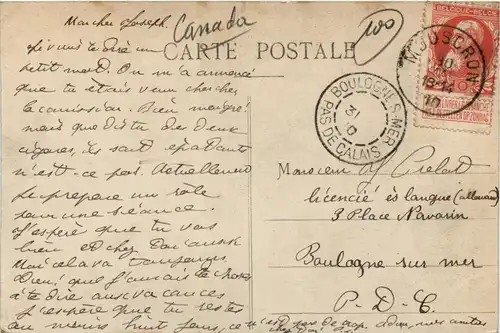 Canada
100
CARTE POSTALE
Mon cher Joseph.
Je viens te dire un
petit mot. On m'a annoncé
que tu étais venu chercher
la comission. Bien maigre
mais que dis tu des deux
cigares, ils sont épatants
n'est-ce pas. Actuellement
je prépare un rôle
pour une séance.
J'espère que tu vas
bien et chez Don aussi
Moi cela va toujours
bien, que j'aurais de choses
à te dire aux vacances
J'espère que tu restes
au moins huit jours, ce
BELGIQUE-BELGIE
MOUSCRON
BOULOGNE S-MER
31
PAS DE CALAIS
Monsieur J Prelat
licencié ès langue (allemand)
3 Place Navarin
Boulogne sur mer
P-D-C.
c'est pas de trop,